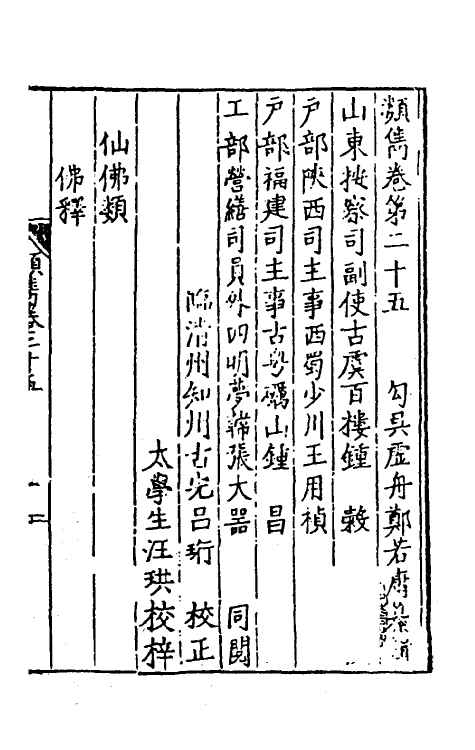 類雋卷第二十五　勾吳虛舟鄭若庸
山東按察司副使古虞百樓鍾　穀
戶部陝西司主事西蜀少川王用楨
戶部福建司主事古粵礪山鍾　昌
工部營繕司員外四明夢韓張大器　同閱
臨清州知州古完呂珩　校正
太學生汪珙校梓
仙佛類
佛釋
類雋卷二十五　一